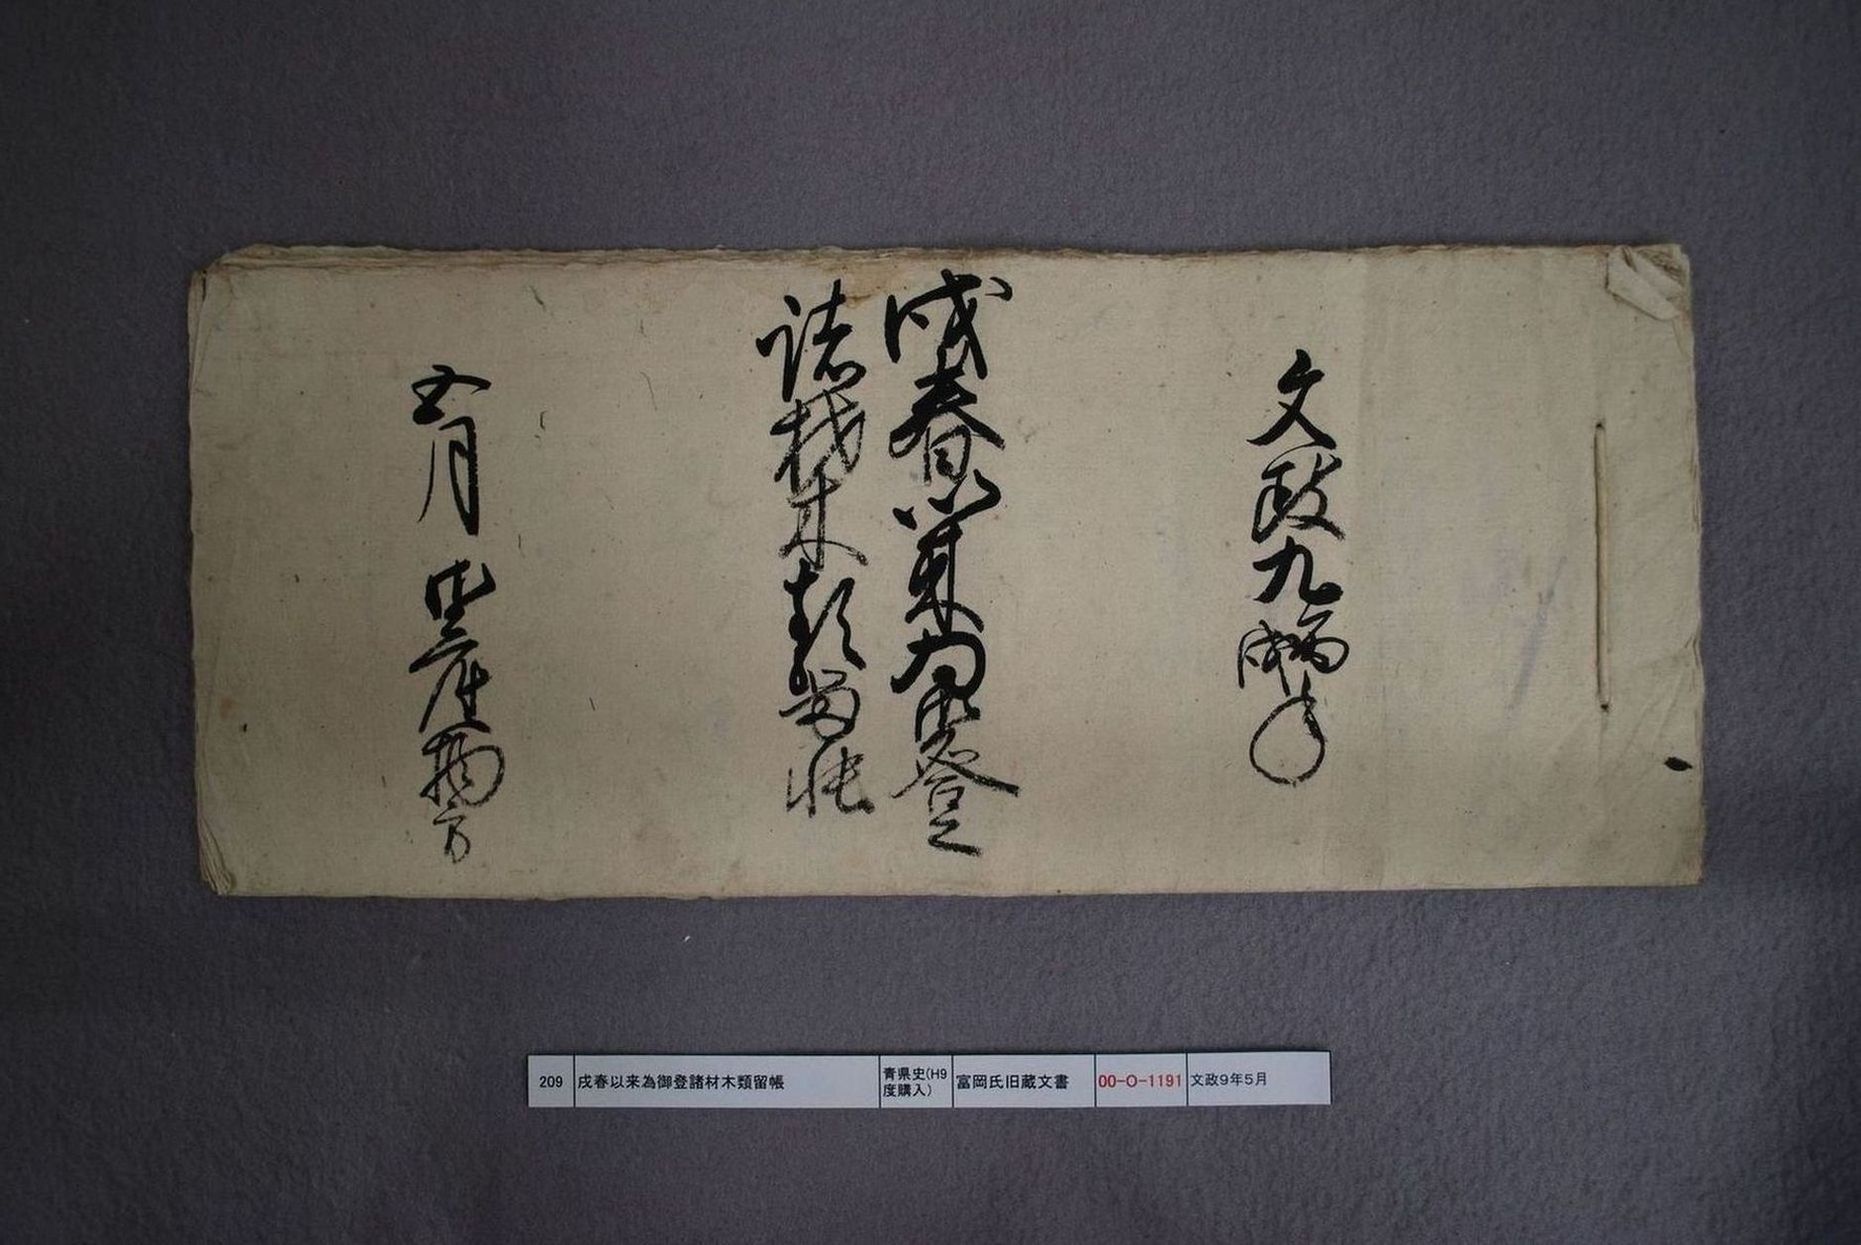 文政九丙戌年
戌春以来為御登之
諸材木類留帳
五月 御産物方
209 戌春以来為御登諸材木類留帳 青県史(H9度購入) 富岡氏旧蔵文書 00-O-1191 文政9年5月